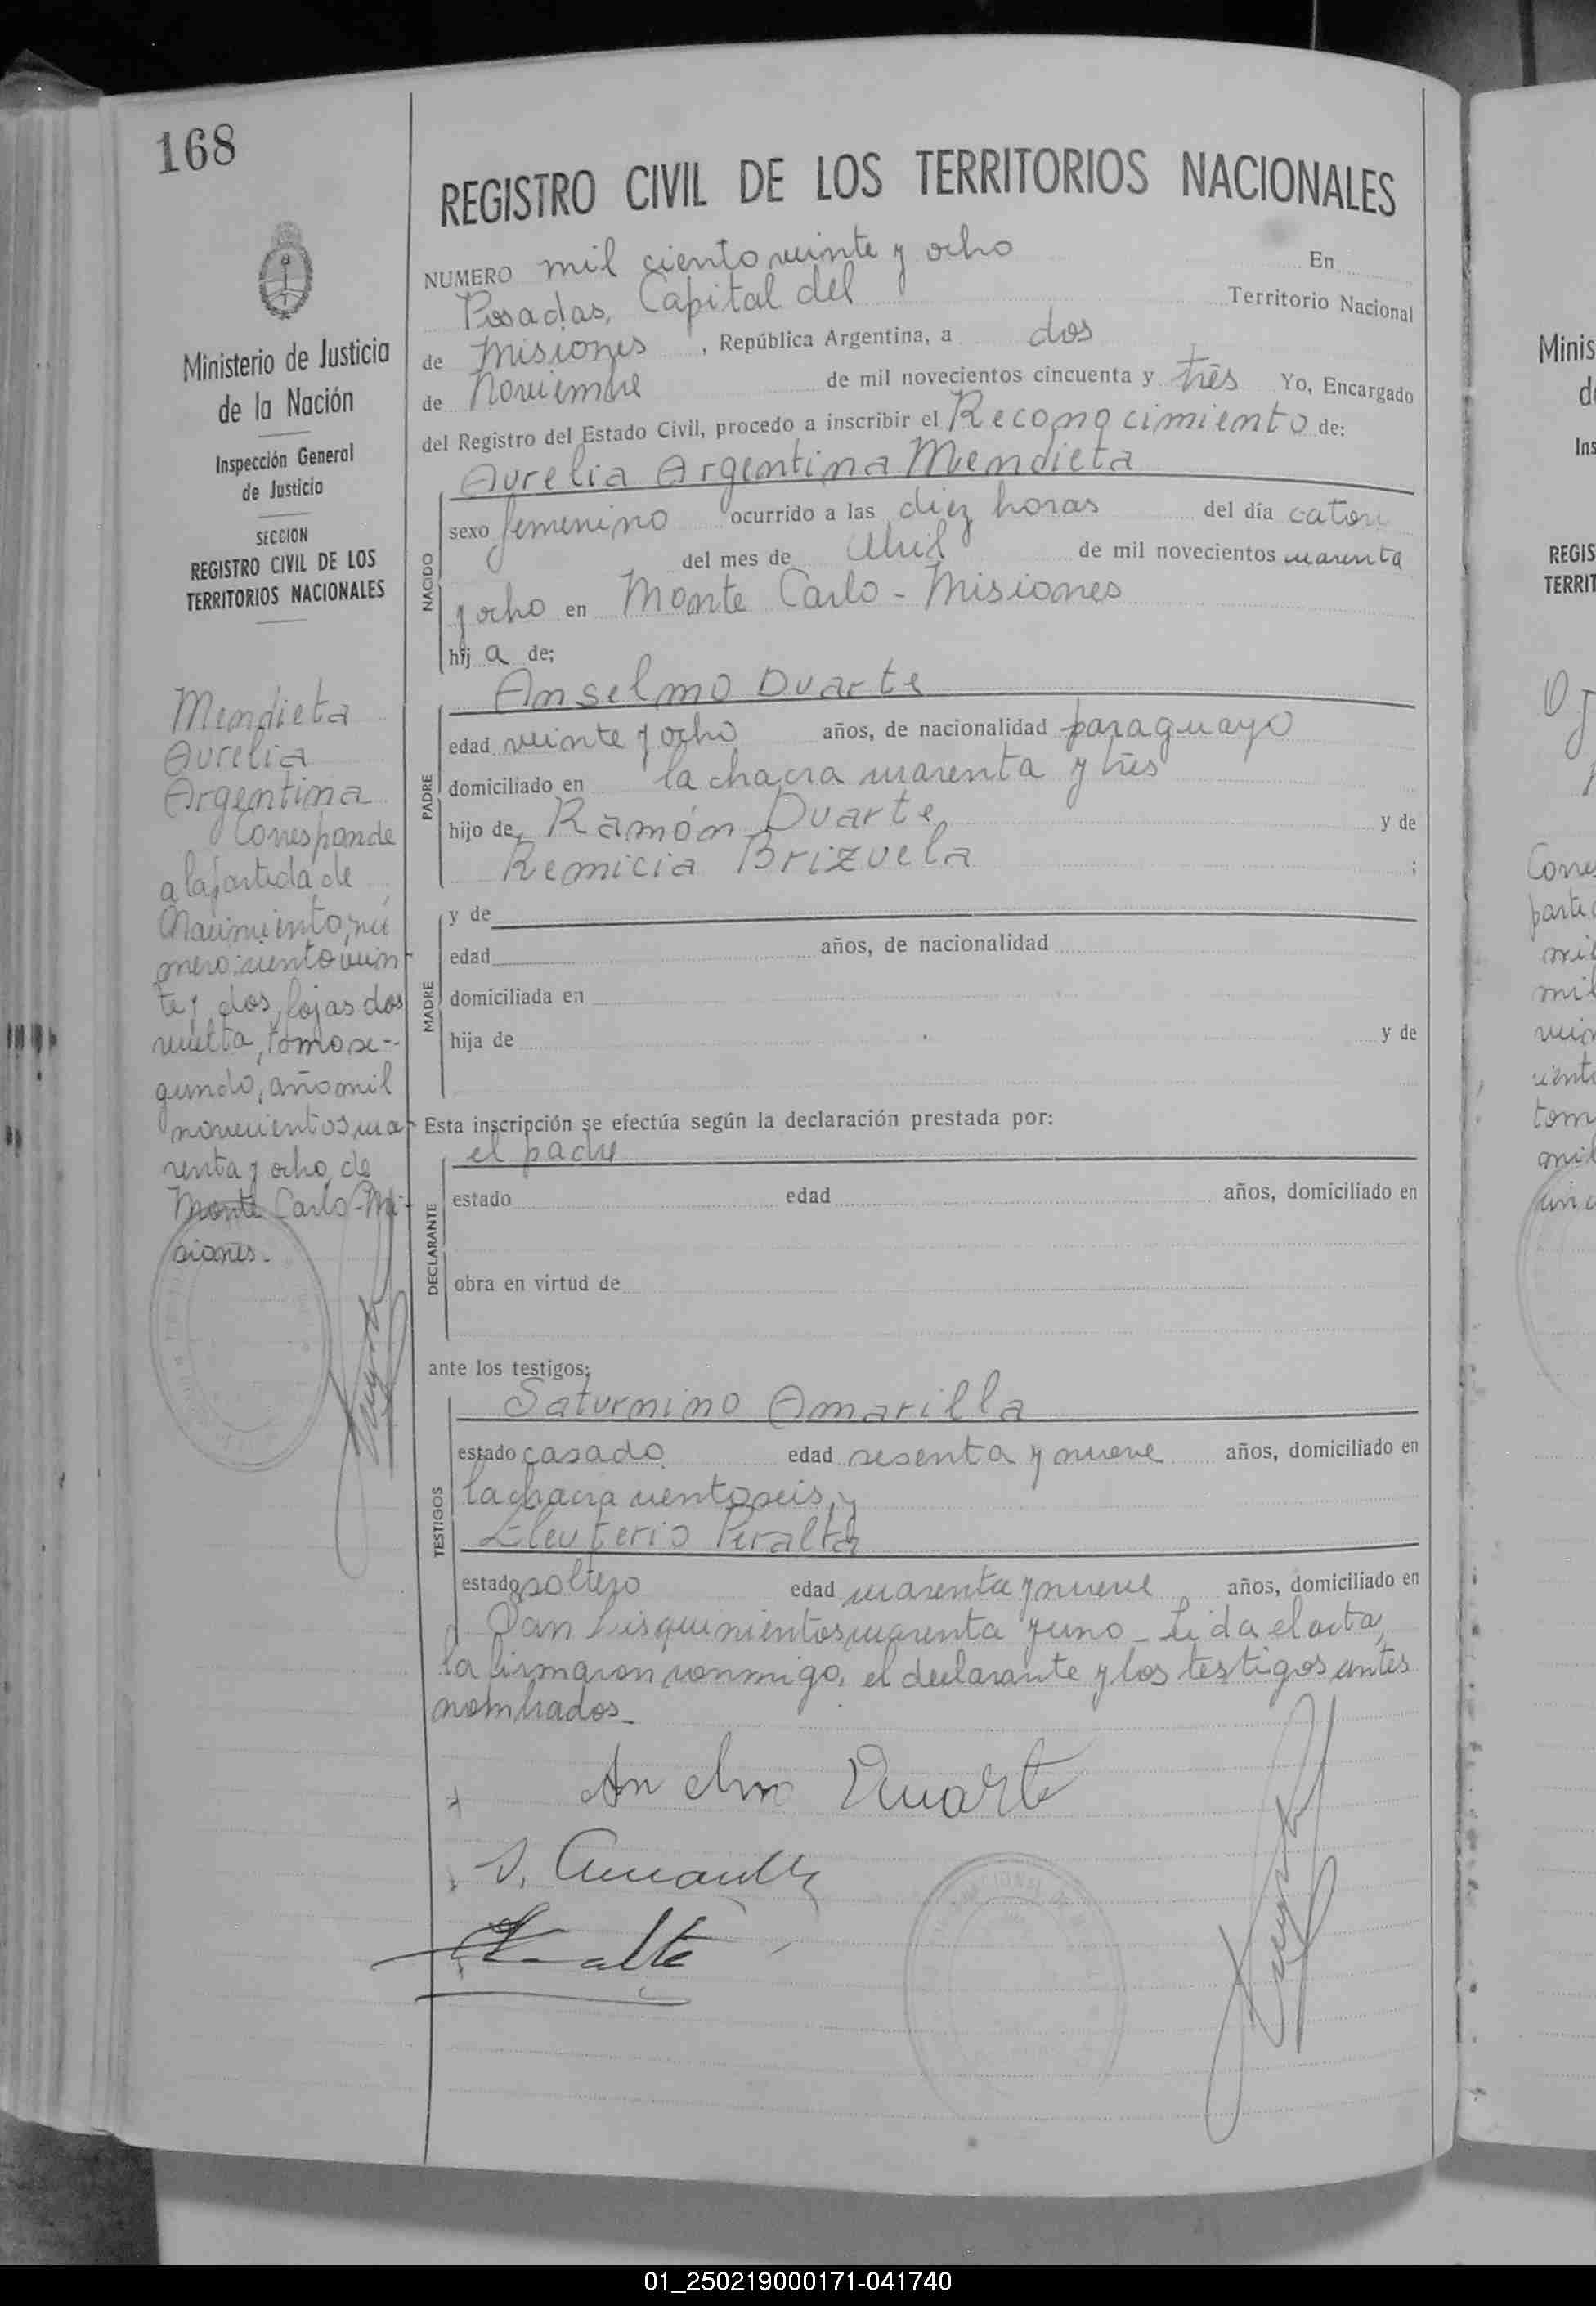 168
REGISTRO CIVIL DE LOS TERRITORIOS NACIONALES
Ministerio de Justicia
de la Nación
Inspección General
de Justicia
SECCION
REGISTRO CIVIL DE LOS
TERRITORIOS NACIONALES
Mendieta
Aurelia
Argentina
Corresponde
a la partida de
Nacimiento nú
mero ciento vein-
te y dos, fojas dos
vuelta, tomo se-
gundo, año mil
novecientos cua-
renta y ocho, de
Monte Carlo-Mi-
siones.
NUMERO mil ciento veinte y ocho En
Posadas, Capital del Territorio Nacional
de Misiones , República Argentina, a dos
de Noviembre de mil novecientos cincuenta y trés Yo, Encargado
del Registro del Estado Civil, procedo a inscribir el Reconocimiento de:
Aurelia Argentina Mendieta
NACIDO
sexo femenino ocurrido a las diez horas del día cator
del mes de Abril de mil novecientos cuarenta
y ocho en Monte Carlo - Misiones
hij a de;
Anselmo Duarte
PADRE
edad veinte y ocho años, de nacionalidad paraguayo
domiciliado en la chacra cuarenta y trés
hijo de Ramón Duarte y de
Remicia Brizuela ;
MADRE
y de
edad años, de nacionalidad
domiciliada en
hija de y de
Esta inscripción se efectúa según la declaración prestada por:
el padre
DECLARANTE
estado edad años, domiciliado en
obra en virtud de
ante los testigos;
Saturnino Amarilla
TESTIGOS
estado casado edad sesenta y nueve años, domiciliado en
la chacra ciento seis, y
Eleuterio Peralta
estado soltero edad cuarenta y nueve años, domiciliado en
San Luis quinientos cuarenta y uno - Leida el acta,
la firmaron conmigo, el declarante y los testigos antes
nombrados-
Anselmo Duarte
S. Amarilla
01_250219000171-041740